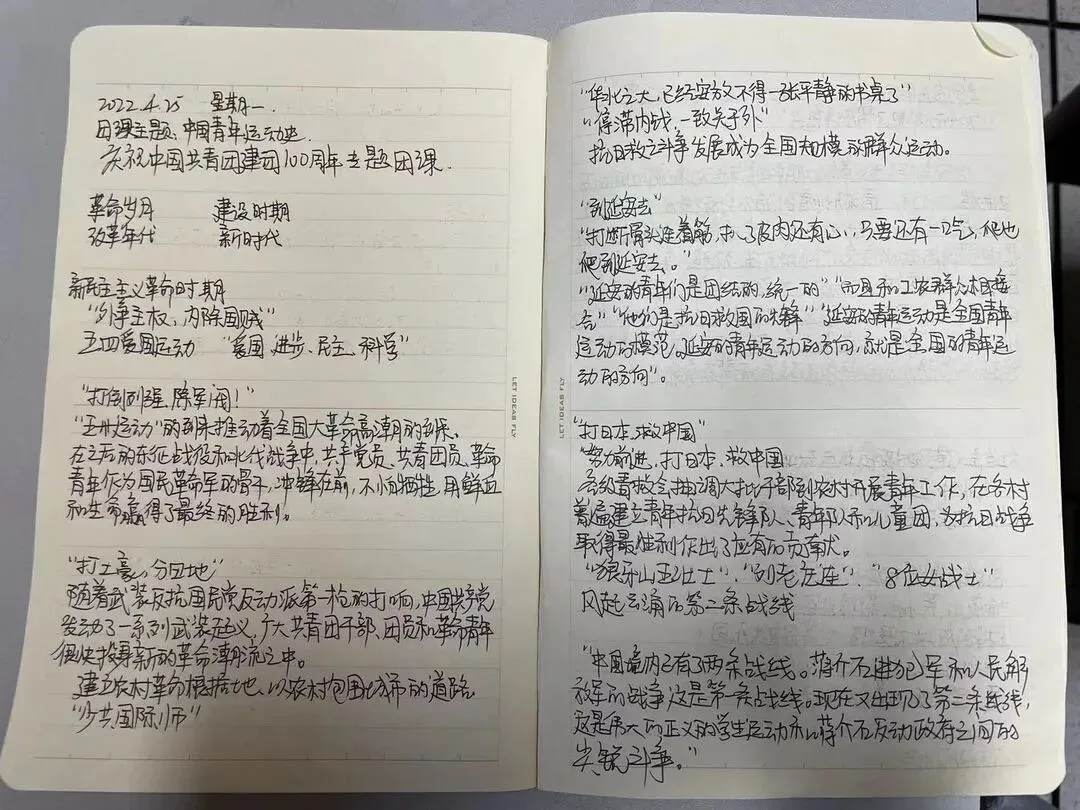 2022.4.25 星期一.
日课主题:中国青年运动史.
庆祝中国共青团建团100周年专题团课.
革命岁月 建设时期
改革年代 新时代
新民主主义革命时期
"外争主权,内除国贼"
五四爱国运动 "爱国、进步、民主、科学"
"打倒列强,除军阀!"
"五卅运动"的到来推动着全国大革命高潮的到来.
在之后的东征战役和北伐战争中,共产党员、共青团员、革命
青年作为国民革命军的骨干,冲锋在前,不怕牺牲,用鲜血
和生命赢得了最终的胜利。
"打土豪,分田地"
随着武装反抗国民党反动派第一枪的打响,中国共产党
发动了一系列武装起义,广大共青团干部、团员和革命青年
很快投身新的革命潮流之中。
建立农村革命根据地,以农村包围城市的道路
"少共国际师"
LET IDEAS FLY
LET IDEAS FLY
"华北之大,已经安放不得一张平静的书桌了"
"停滞内战,一致关于外"
抗日救亡斗争发展成为全国规模的群众运动。
"到延安去"
"打断骨头连着筋,扒了皮肉还有心,只要还有一口气,爬也
爬到延安去。"
"延安的青年们是团结的,统一的""而且和工农群众相结
合""他们是抗日救国的先锋""延安的青年运动是全国青年
运动的模范。延安的青年运动的方向,就是全国的青年运
动的方向"。
"打日本,救中国"
努力前进,打日本,救中国
各级青救会抽调大批干部到农村开展青年工作,在各村
普遍建立青年抗日先锋队、青年队和儿童团,为抗日战争
取得最胜利作出了应有的贡献。
"狼牙山五壮士"、"刘老庄连"、"8位女战士"
风起云涌的第二条战线
"中国境内已有了两条战线。蒋介石进犯军和人民解
放军的战争,这是第一条战线。现在又出现了第二条战线,
这是伟大的正义的学生运动和蒋介石反动政府之间的
尖锐斗争。"